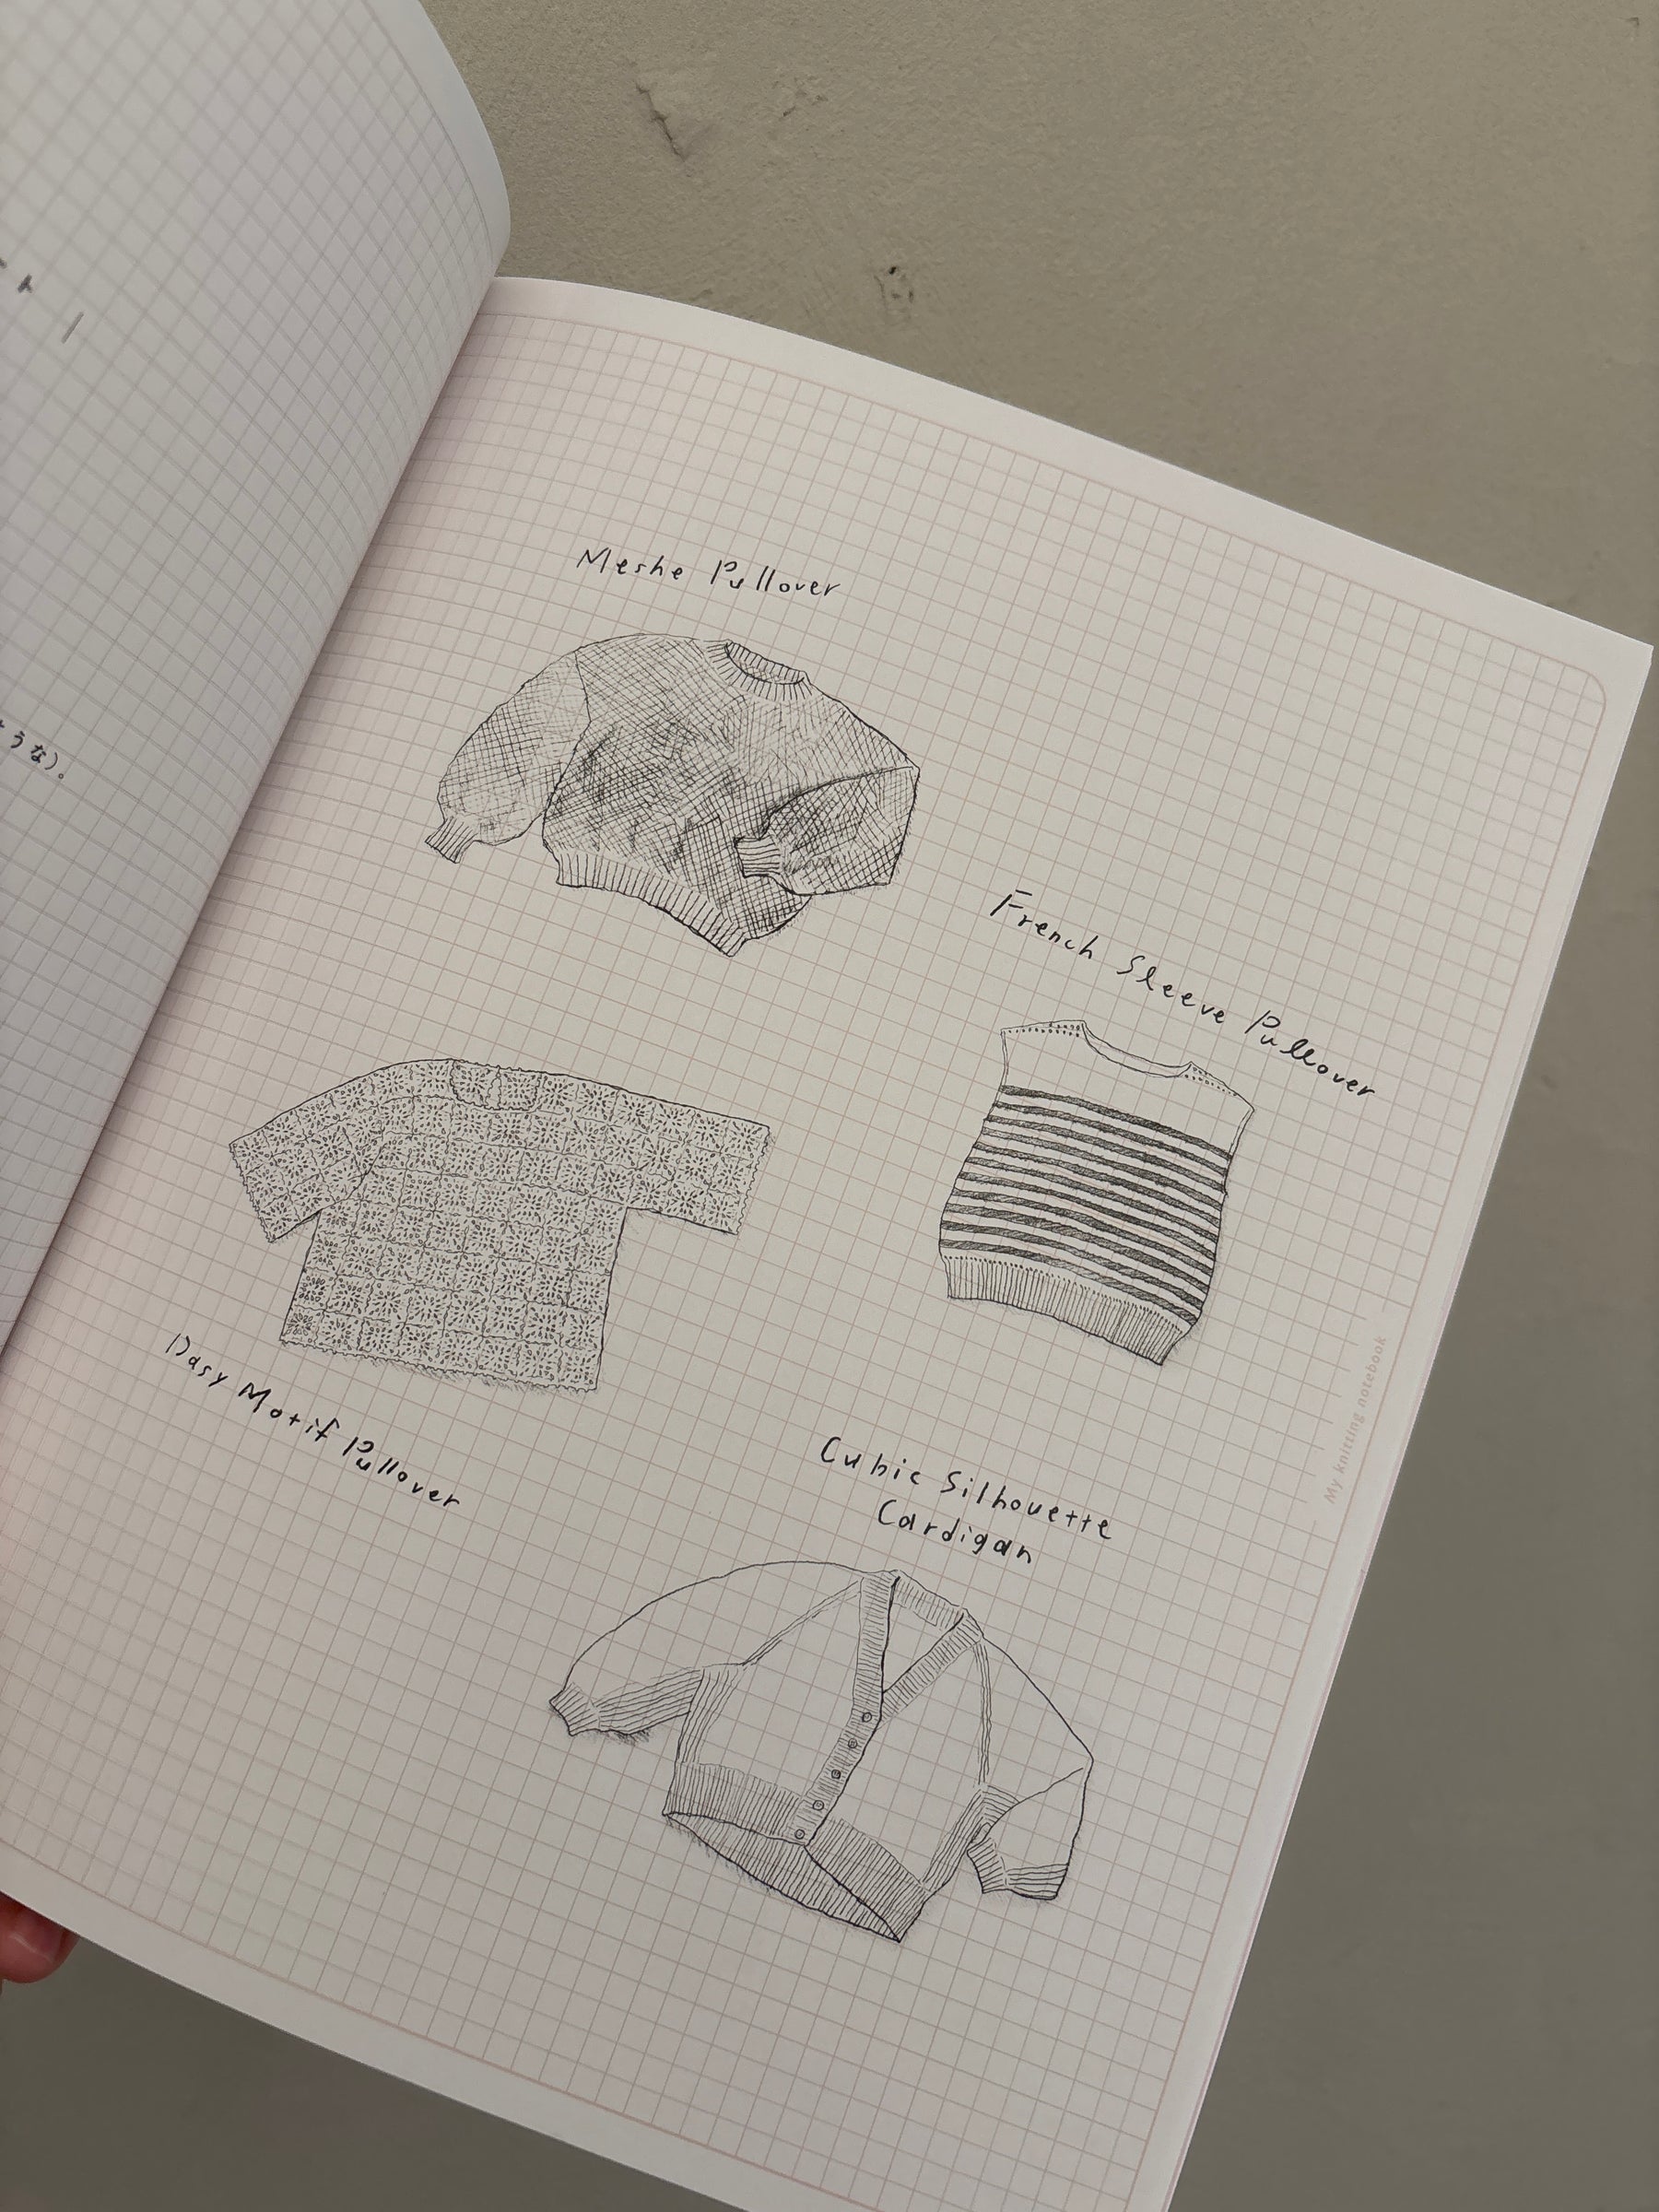 うな)。
Meshe Pullover
French Sleeve Pullover
Dasy Motif Pullover
Cubic Silhouette
Cardigan
My knitting notebook